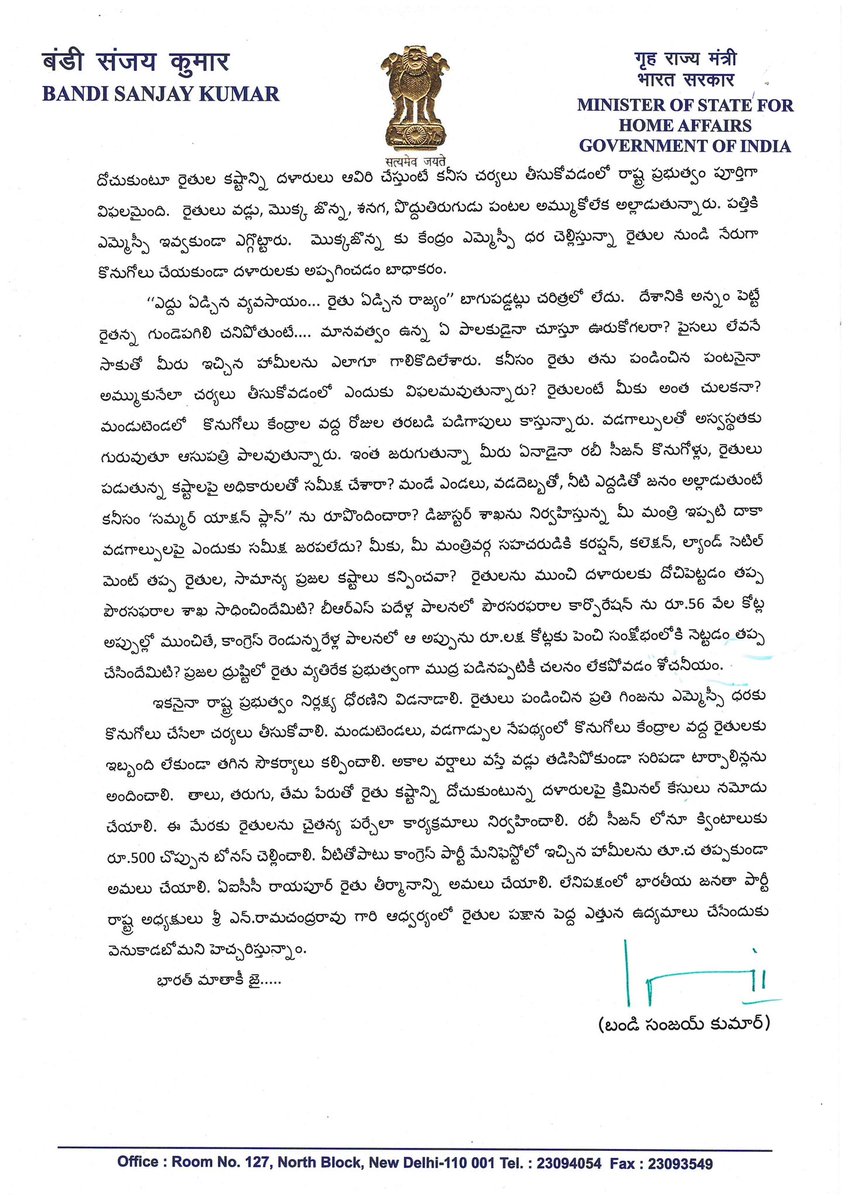 बंडी संजय कुमार
BANDI SANJAY KUMAR
सत्यमेव जयते
गृह राज्य मंत्री
भारत सरकार
MINISTER OF STATE FOR
HOME AFFAIRS
GOVERNMENT OF INDIA
దోచుకుంటూ రైతుల కష్టాన్ని దళారులు ఆవిరి చేస్తుంటే కనీస చర్యలు తీసుకోవడంలో రాష్ట్ర ప్రభుత్వం పూర్తిగా
విఫలమైంది. రైతులు వడ్లు, మొక్క జొన్న, శనగ, పొద్దుతిరుగుడు పంటల అమ్ముకోలేక అల్లాడుతున్నారు. పత్తికి
ఎమ్మెస్పీ ఇవ్వకుండా ఎగ్గొట్టారు. మొక్కజొన్న కు కేంద్రం ఎమ్మెస్పీ ధర చెల్లిస్తున్నా రైతుల నుండి నేరుగా
కొనుగోలు చేయకుండా దళారులకు అప్పగించడం బాధాకరం.
“ఎద్దు ఏడ్చిన వ్యవసాయం... రైతు ఏడ్చిన రాజ్యం” బాగుపడ్డట్లు చరిత్రలో లేదు. దేశానికి అన్నం పెట్టే
రైతన్న గుండెపగిలి చనిపోతుంటే.... మానవత్వం ఉన్న ఏ పాలకుడైనా చూస్తూ ఊరుకోగలరా? పైసలు లేవనే
సాకుతో మీరు ఇచ్చిన హామీలను ఎలాగూ గాలికొదిలేశారు. కనీసం రైతు తను పండించిన పంటనైనా
అమ్ముకునేలా చర్యలు తీసుకోవడంలో ఎందుకు విఫలమవుతున్నారు? రైతులంటే మీకు అంత చులకనా?
మండుటెండలో కొనుగోలు కేంద్రాల వద్ద రోజుల తరబడి పడిగాపులు కాస్తున్నారు. వడగాల్పులతో అస్వస్థతకు
గురువుతూ ఆసుపత్రి పాలవుతున్నారు. ఇంత జరుగుతున్నా మీరు ఏనాడైనా రబీ సీజన్ కొనుగోళ్లు, రైతులు
పడుతున్న కష్టాలపై అధికారులతో సమీక్ష చేశారా? మండే ఎండలు, వడదెబ్బతో, నీటి ఎద్దడితో జనం అల్లాడుతుంటే
కనీసం ‘సమ్మర్ యాక్షన్ ప్లాన్” ను రూపొందించారా? డిజాస్టర్ శాఖను నిర్వహిస్తున్న మీ మంత్రి ఇప్పటి దాకా
వడగాల్పులపై ఎందుకు సమీక్ష జరపలేదు? మీకు, మీ మంత్రివర్గ సహచరుడికి కరప్షన్, కలెక్షన్, ల్యాండ్ సెటిల్
మెంట్ తప్ప రైతుల, సామాన్య ప్రజల కష్టాలు కన్పించవా? రైతులను ముంచి దళారులకు దోచిపెట్టడం తప్ప
పౌరసఫరాల శాఖ సాధించిందేమిటి? బీఆర్ఎస్ పదేళ్ల పాలనలో పౌరసరఫరాల కార్పొరేషన్ ను రూ.56 వేల కోట్ల
అప్పుల్లో ముంచితే, కాంగ్రెస్ రెండున్నరేళ్ల పాలనలో ఆ అప్పును రూ.లక్ష కోట్లకు పెంచి సంక్షోభంలోకి నెట్టడం తప్ప
చేసిందేమిటి? ప్రజల ద్రుష్టిలో రైతు వ్యతిరేక ప్రభుత్వంగా ముద్ర పడినప్పటికీ చలనం లేకపోవడం శోచనీయం.
ఇకనైనా రాష్ట్ర ప్రభుత్వం నిర్లక్ష్య ధోరణిని విడనాడాలి. రైతులు పండించిన ప్రతి గింజను ఎమ్మెస్పీ ధరకు
కొనుగోలు చేసేలా చర్యలు తీసుకోవాలి. మండుటెండలు, వడగాడ్పుల నేపథ్యంలో కొనుగోలు కేంద్రాల వద్ద రైతులకు
ఇబ్బంది లేకుండా తగిన సౌకర్యాలు కల్పించాలి. అకాల వర్షాలు వస్తే వడ్లు తడిసిపోకుండా సరిపడా టార్పాలిన్లను
అందించాలి. తాలు, తరుగు, తేమ పేరుతో రైతు కష్టాన్ని దోచుకుంటున్న దళారులపై క్రిమినల్ కేసులు నమోదు
చేయాలి. ఈ మేరకు రైతులను చైతన్య పర్చేలా కార్యక్రమాలు నిర్వహించాలి. రబీ సీజన్ లోనూ క్వింటాలుకు
రూ.500 చొప్పున బోనస్ చెల్లించాలి. వీటితోపాటు కాంగ్రెస్ పార్టీ మేనిఫెస్టోలో ఇచ్చిన హామీలను తూ.చ తప్పకుండా
అమలు చేయాలి. ఏఐసీసీ రాయపూర్ రైతు తీర్మానాన్ని అమలు చేయాలి. లేనిపక్షంలో భారతీయ జనతా పార్టీ
రాష్ట్ర అధ్యక్షులు శ్రీ ఎన్.రామచంద్రరావు గారి ఆధ్వర్యంలో రైతుల పక్షాన పెద్ద ఎత్తున ఉద్యమాలు చేసేందుకు
వెనుకాడబోమని హెచ్చరిస్తున్నాం.
భారత్ మాతాకీ జై.....
(బండి సంజయ్ కుమార్)
Office : Room No. 127, North Block, New Delhi-110 001 Tel. : 23094054 Fax : 23093549